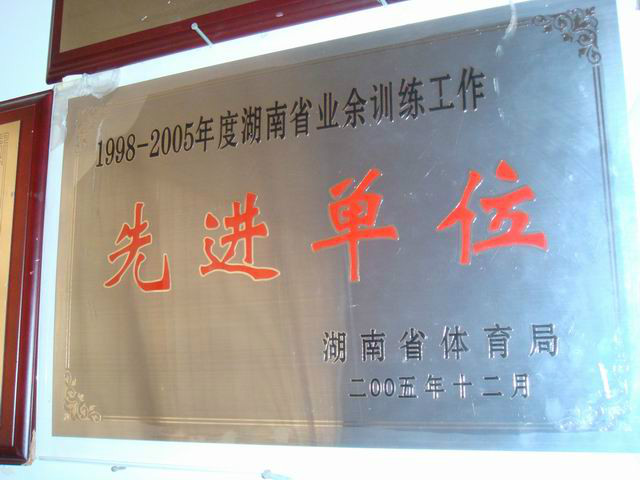 1998-2005年度湖南省业余训练工作
先进单位
湖南省体育局
二00五年十二月